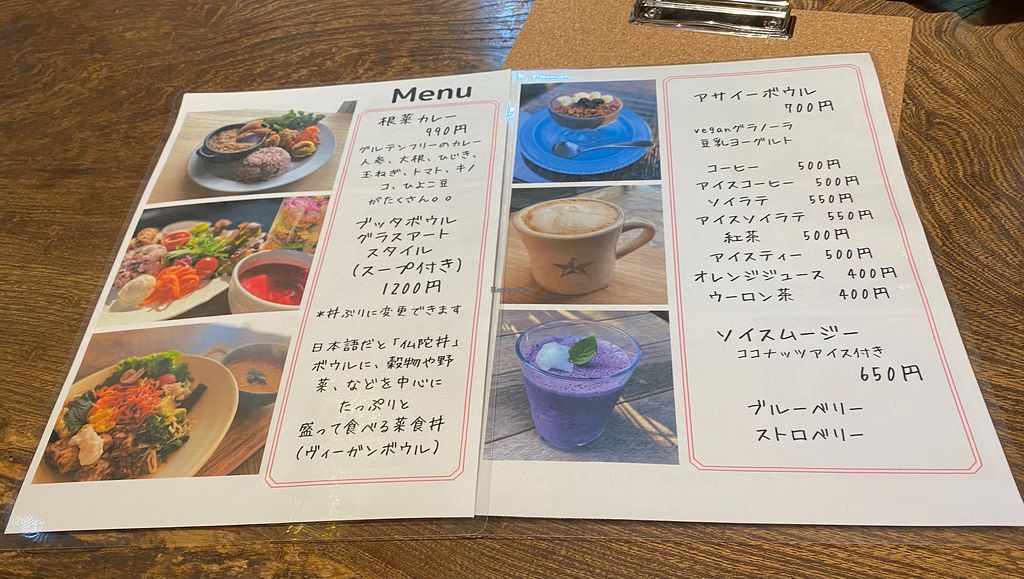 Menu
根菜カレー
990円
グルテンフリーのカレー
人参、大根、ひじき、
玉ねぎ、トマト、キノ
コ、ひよこ豆
がたくさん。。
ブッタボウル
グラスアート
スタイル
(スープ付き)
1200円
*丼ぶりに変更できます
日本語だと「仏陀丼」
ボウルに、穀物や野
菜、などを中心に
たっぷりと
盛って食べる菜食丼
(ヴィーガンボウル)
アサイーボウル
700円
veganグラノーラ
豆乳ヨーグルト
コーヒー 500円
アイスコーヒー 500円
ソイラテ 550円
アイスソイラテ 550円
紅茶 500円
アイスティー 500円
オレンジジュース 400円
ウーロン茶 400円
ソイスムージー
ココナッツアイス付き
650円
ブルーベリー
ストロベリー